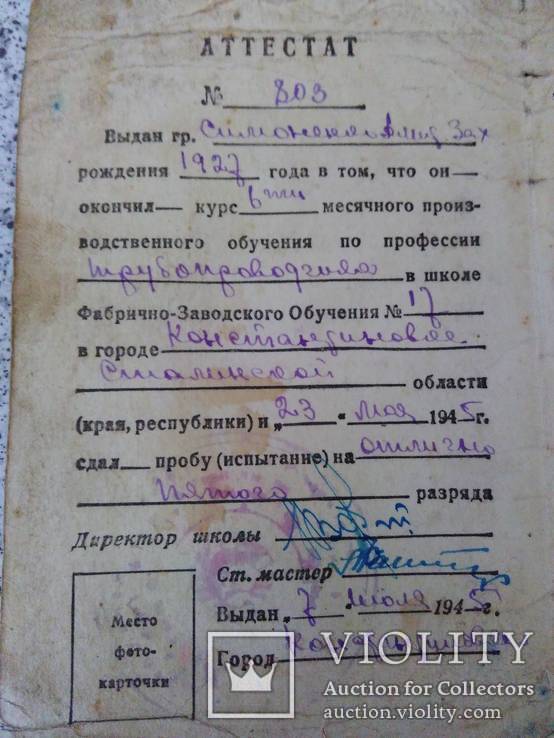 АТТЕСТАТ
№ 803
Выдан гр. Зах
рождения 1927 года в том, что он—
окончил— курс 6ти месячного произ-
водственного обучения по профессии
трубопроводчика в школе
Фабрично-Заводского Обучения № 17
в городе Константиновке
Сталинской области
(края, республики) и „23 " мая 1945г.
сдал пробу (испытание) на отлично
пятого разряда
Директор школы
Ст. мастер
Выдан „7 " июля 1945г.
Город
Место
фото-
карточки
VIOLITY
Auction for Collectors
auction.violity.com